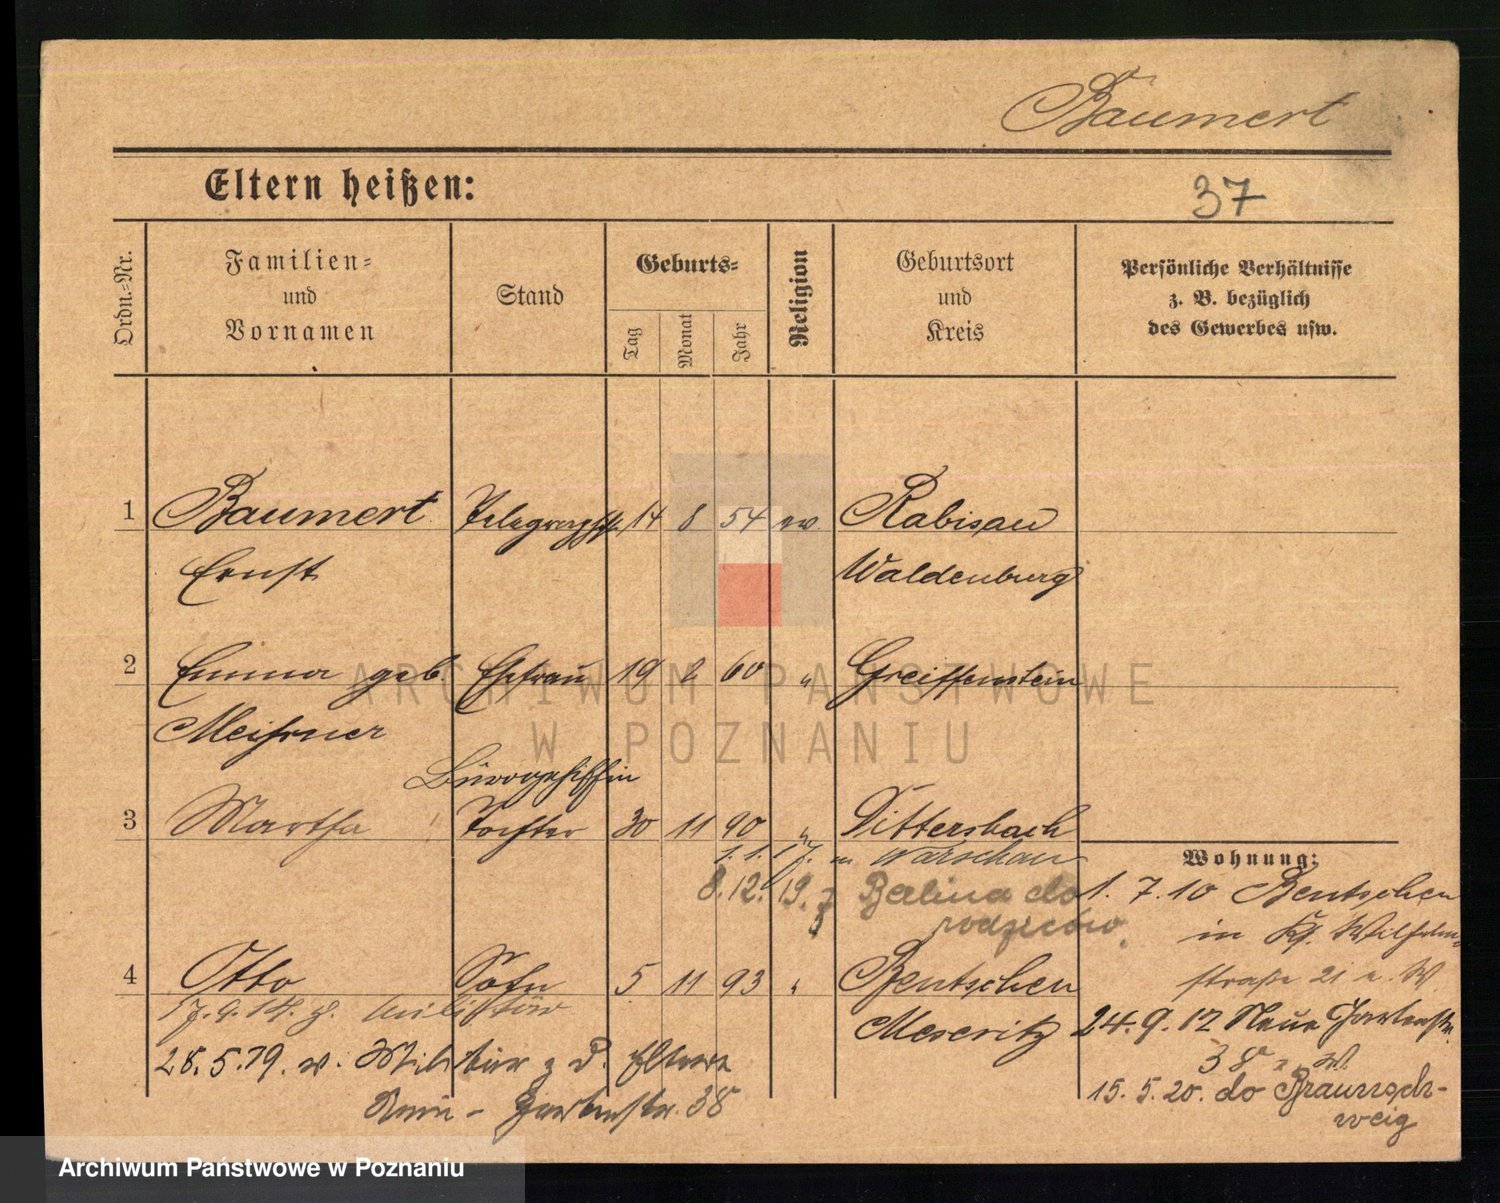 Baumert
Eltern heißen:
37
Ordn.-Nr.
Familien- und Vornamen
Stand
Geburts-
Tag
Monat
Jahr
Religion
Geburtsort und Kreis
Persönliche Verhältnisse z. B. bezüglich des Gewerbes usw.
1 Baumert Telegraphist 14 8 54 ev. Rabisau
Ernst Waldenburg
2 Emma geb. Ehefrau 19 2 60 " Greiffenstein
Meißner
Bürogehilfin
3 Martha Tochter 30 11 90 " Dittersbach
1.1.17. n Warschau
8.12.19. z Berlina do
rodziców.
Wohnung:
1. 7. 10 Bentschen
in Kf. Wilhelm-
straße 21 n. W
4 Otto Sohn 5 11 93 " Bentschen
17.9.14. z. Militär Meseritz
24.9.12 Neue Gartenstr.
38
28.5.19. v. Militär z d. Eltern
15.5.20. do Braunsch-
weig
Gartenstr. 38
ARCHIWUM PAŃSTWOWE
W POZNANIU
Archiwum Państwowe w Poznaniu